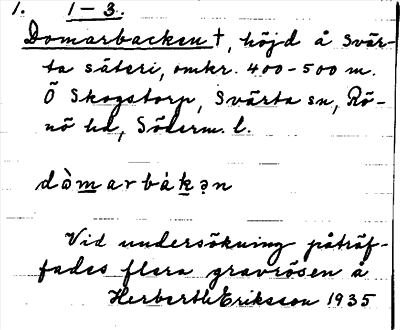 1. 1-3.
Domarbacken †, höjd å Svär-
ta säteri, omkr. 400-500 m.
Ö Skogstorp, Svärta sn, Rö-
nö hd, Söderm. l.
dàmarbákən
Vid undersökning påträf-
fades flera gravrösen å
Herberth Eriksson 1935